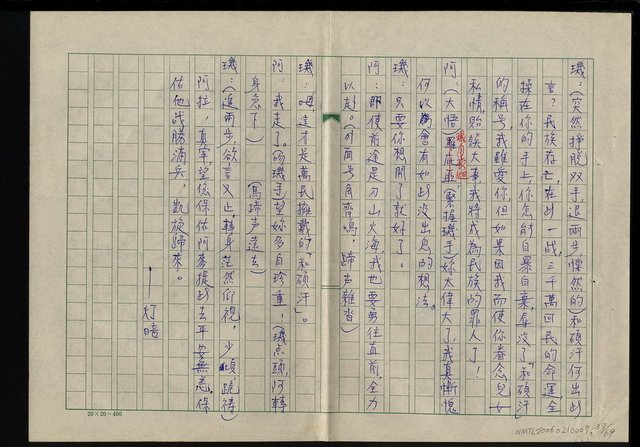 璣：（突然掙脫双手退兩步，悚然的）和碩汗何出此
言？民族存亡，在此一战，三千萬回民的命運全
操在你的手上，你怎能自暴自棄，辱沒了「和碩汗
的稱号，我雖愛你，但如果因我而使你眷念兒女
私情，貽誤大事，我將成為民族的罪人了！
阿：（大悟）（緊握璣手）妳太偉大了，我真慚愧
何以為會有如此沒出息的想法。
璣：只要你想開了就好了。
阿：即使前途是刀山火海，我也要勇往直前，全力
以赴。（外面号角齊鳴，蹄声雜沓）
璣：嗯，這才是萬民擁戴的「和碩汗」。
阿：我走了。（吻璣手）望妳多自珍重！（璣点頭阿轉
身急下）　（馬蹄声遠去）
璣：（追兩步，欲言又止，轉身茫然仰視，少頃跪禱）
阿拉，真宰，望您保佑阿麥提此去平安無恙，保
佑他战勝滿兵，凱旋歸來。
—灯暗
20×20=400
NMTL20060210007
37/69